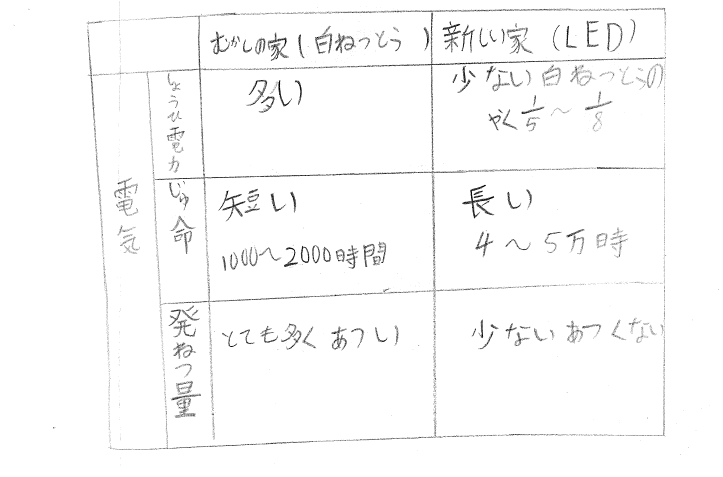 むかしの家(白ねつとう)
新しい家(LED)
電気
しょうひ電力
多い
少ない白ねつとうの
やく1/5～1/8
じゅ命
短い
1000～2000時間
長い
4～5万時
発ねつ量
とても多くあつい
少ないあつくない